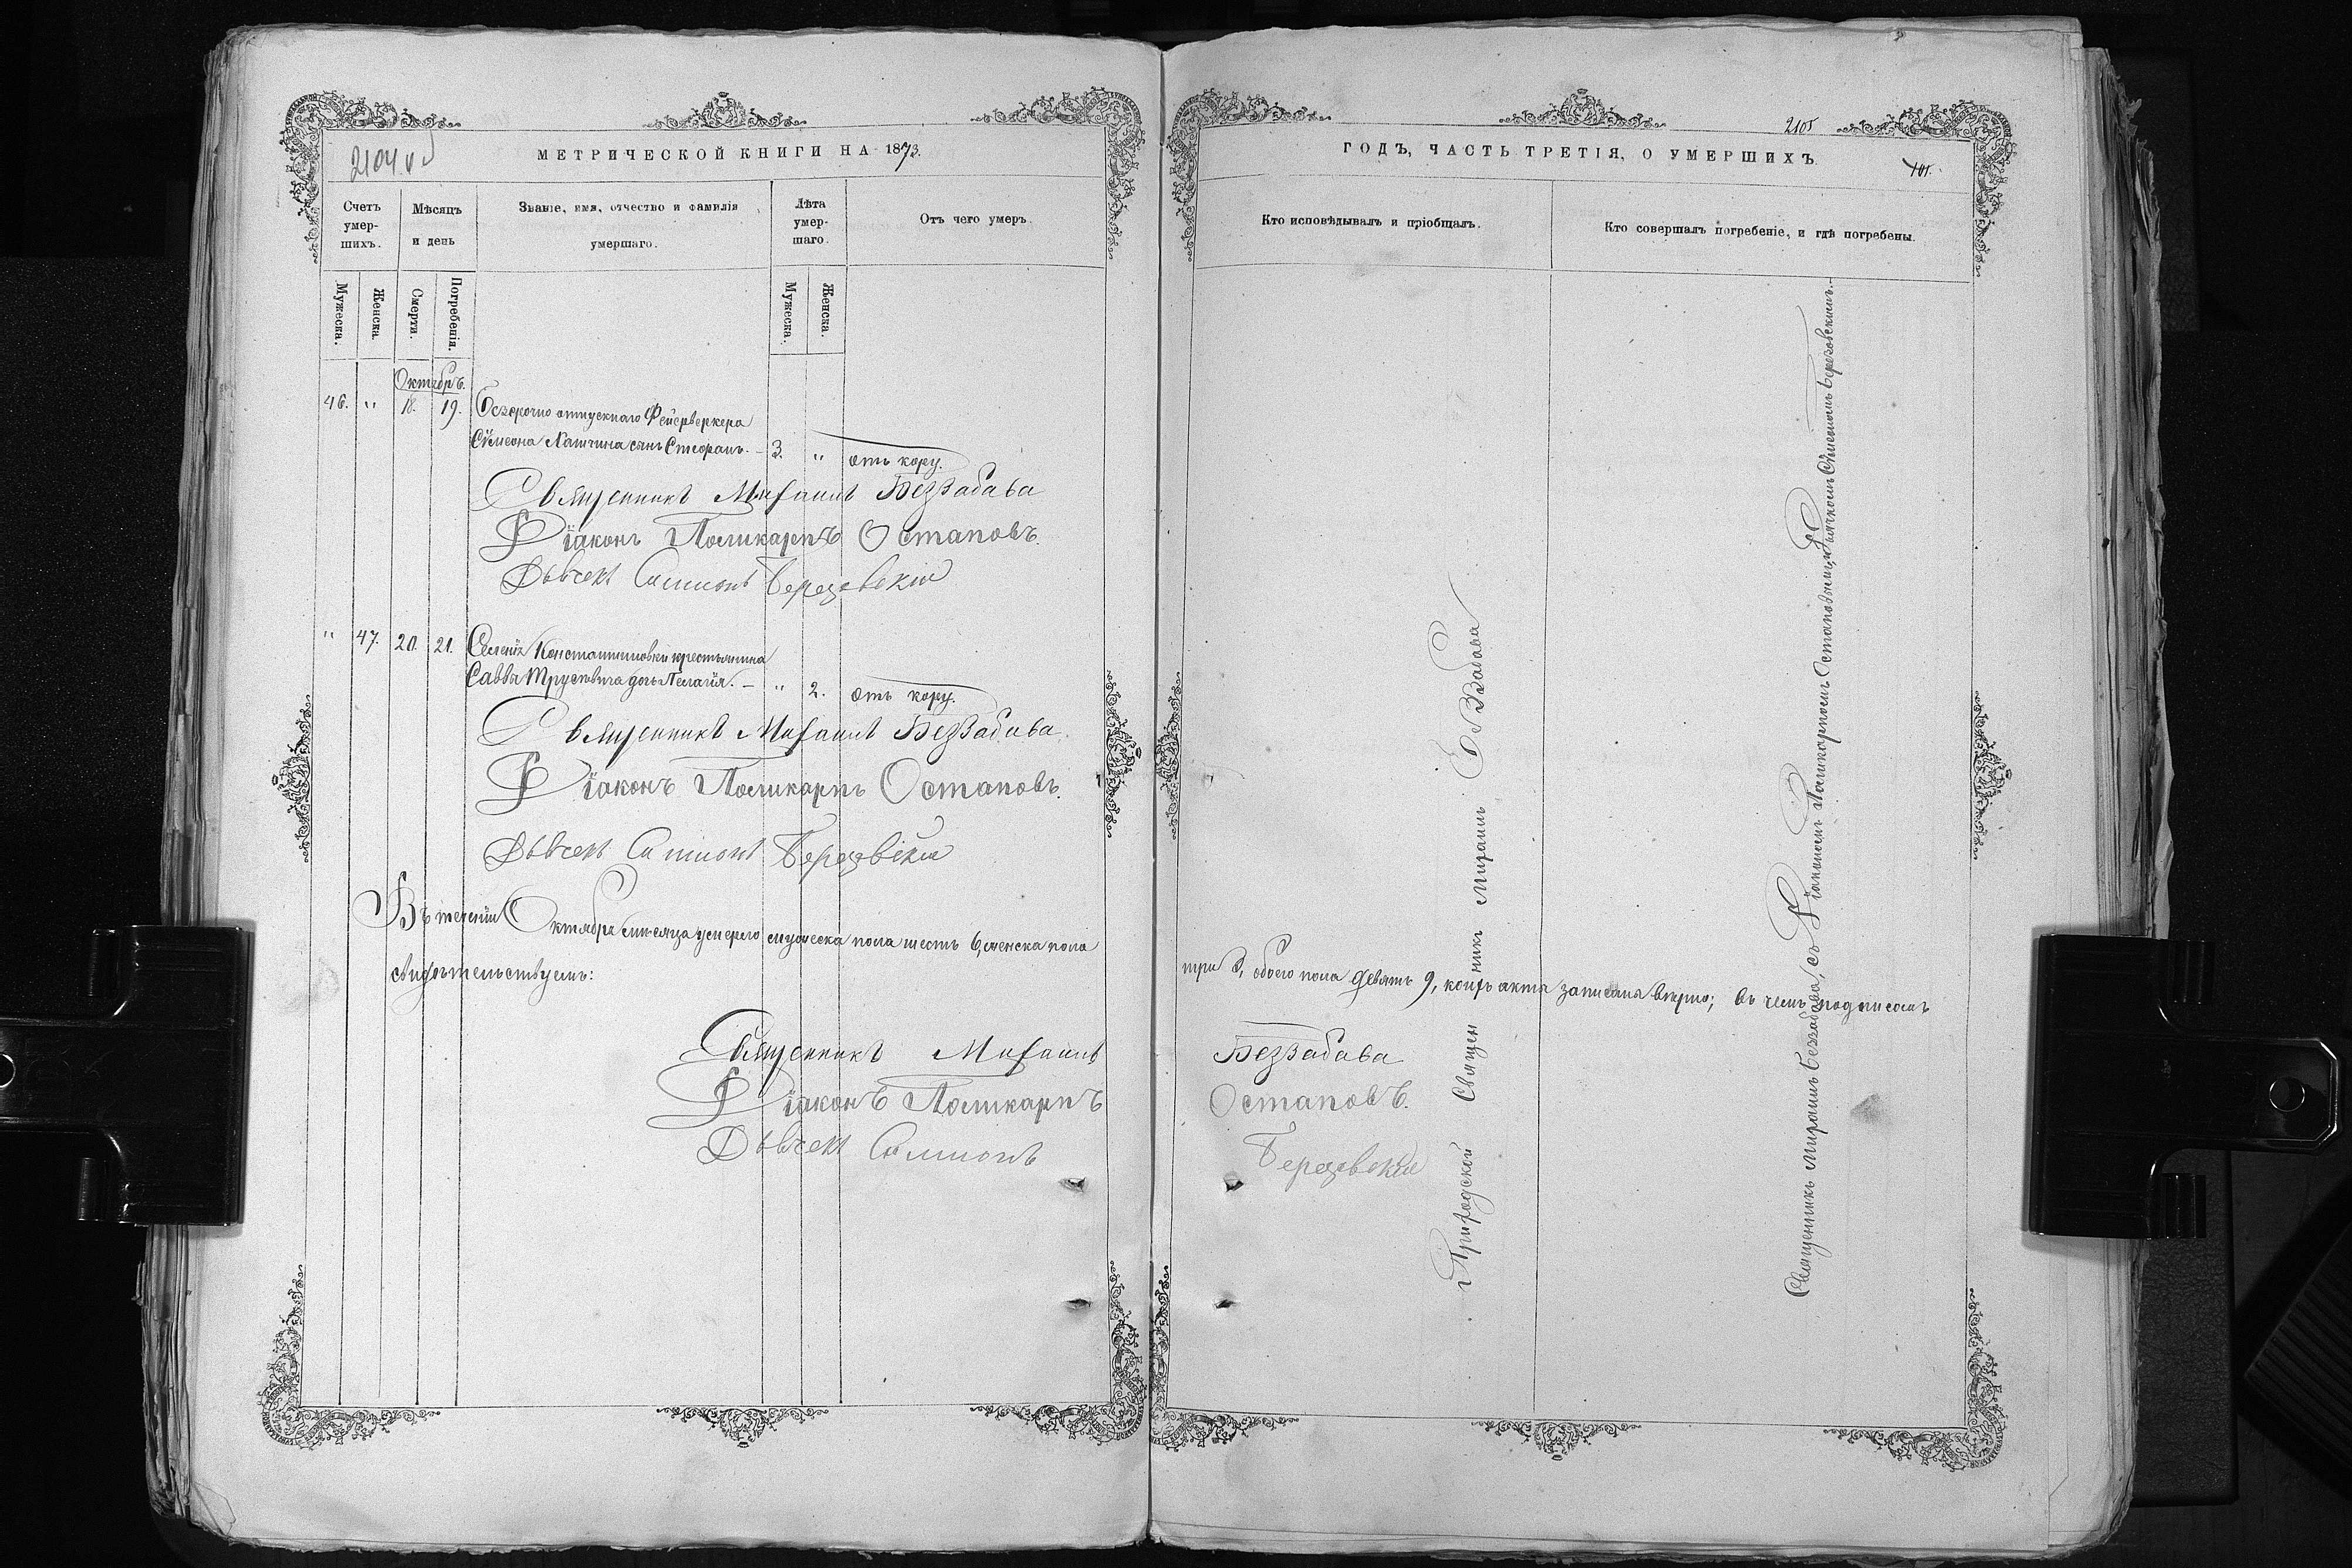 2104 об
МЕТРИЧЕСКОЙ КНИГИ НА 1873.
Счетъ умер-шихъ.
Мѣсяцъ и день
Званіе, имя, отчество и фамилія умершаго.
Лѣта умер-шаго.
Отъ чего умеръ.
Мужеска.
Женска.
Смерти.
Погребенія.
Мужеска.
Женска.
Октябрь.
46. " 18. 19. Безсрочно отпускнаго Фейерверкера
Сѷмеона Лапчина сынъ Стефанъ. – 3. " отъ кору.
Священникъ Михаилъ Беззабава
Діаконъ Поликарпъ Остаповъ.
Дьячекъ Симионъ Березовскій
" 47. 20. 21. Селенія Константиновки крестьянина
Саввы дочь Пелагія. – " 2. отъ кору.
Священникъ Михаилъ Беззабава.
Діаконъ Поликарпъ Остаповъ.
Дьячекъ Симионъ Березовскій
Въ теченіи Октября мѣсяца умерло мужеска пола шесть 6, женска пола
свидѣтельствуемъ:
Священникъ Михаилъ
Діаконъ Поликарпъ
Дьячекъ Симионъ
2105
ГОДЪ, ЧАСТЬ ТРЕТІЯ, О УМЕРШИХЪ
101.
Кто исповѣдывалъ и пріобщалъ.
Кто совершалъ погребеніе, и гдѣ погребены.
три 3, обоего пола девять 9, коихъ акты записаны вѣрно; въ чемъ подписомъ
Беззабава
Остаповъ.
Березовскій
Приходской Священникъ Михаилъ Беззабава
Священникъ Михаилъ Беззабава, съ Діакономъ Поликарпомъ Остаповымъ, и Дьячкомъ Сѷмеономъ Березовскимъ.–